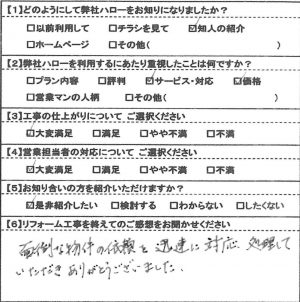 【1】どのようにして弊社ハローをお知りになりましたか?
□以前利用して □チラシを見て ☑知人の紹介
□ホームページ □その他( )
【2】弊社ハローを利用するにあたり重視したことは何ですか?
□プラン内容 □評判 ☑サービス・対応 ☑価格
□営業マンの人柄 □その他( )
【3】工事の仕上がりについて ご選択ください
☑大変満足 □満足 □やや不満 □不満
【4】営業担当者の対応について ご選択ください
☑大変満足 □満足 □やや不満 □不満
【5】お知り合いの方を紹介いただけますか?
☑是非紹介したい □検討する □わからない □したくない
【6】リフォーム工事を終えてのご感想をお聞かせください
面倒な物件の依頼を迅速に対応 処理して
いただきありがとうございました。